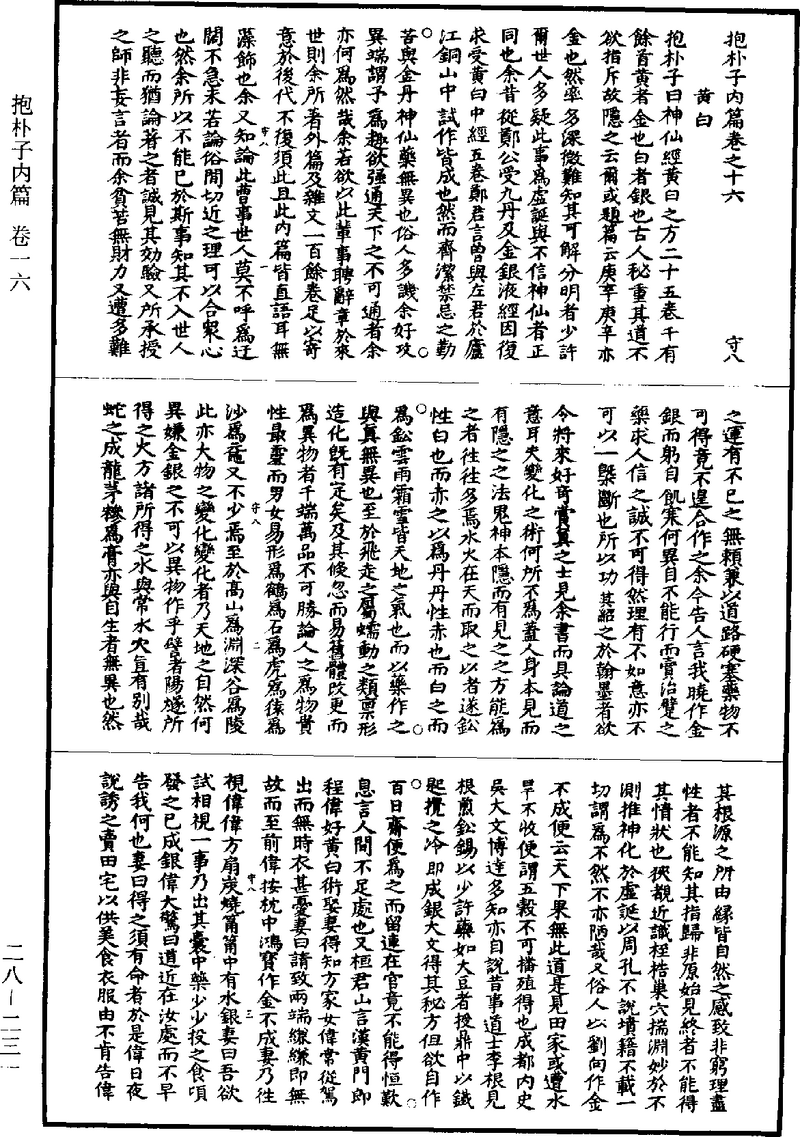 抱朴子内篇卷之十六 守八
黃白
抱朴子曰神仙經黃白之方二十五卷千有
餘首黃者金也白者銀也古人秘重其道不
欲指斥故隱之云爾或題篇云庚辛庚辛亦
金也然率多深微難知其可解分明者少許
爾世人多疑此事為虛誕與不信神仙者正
同也余昔從鄭公受九丹及金銀液經因復
求受黃白中經五卷鄭君言曽與左君於廬
江銅山中試作皆成也然而齊潔禁忌之勤
苦與金丹神仙藥無異也俗人多譏余好攻
異端謂予為趣欲強通天下之不可通者余
亦何為然哉余若欲以此輩事騁辭章於來
世則余所著外篇及雜文一百餘卷足以寄
守八 一
意於後代不復須此且此內篇皆直語耳無
藻飾也余又知論此曹事世人莫不呼為迂
闊不急未若論俗間切近之理可以合眾心
也然余所以不能已於斯事知其不入世人
之聽而猶論著之者誠見其効驗又所承授
之師非妄言者而余貧苦無財力又遭多難
之運有不已之無頼兼以道路硬塞藥物不
可得竟不遑合作之余今告人言我曉作金
銀而躬自飢寒何異自不能行而賣治躄之
藥求人信之誠不可得然理有不如意亦不
可以一槩斷也所以功其紹之於翰墨者欲
令將來好奇賞真之士見余書而具論道之
意耳夫變化之術何所不為蓋人身本見而
有隱之之法鬼神本隱而有見之之方能為
之者往往多焉水火在天而取之以者遂鈆
性白也而赤之以為丹丹性赤也而白之而
為鈆雲雨霜雪皆天地之氣也而以藥作之
與真無異也至於飛走之屬蠕動之類禀形
造化既有定矣及其倐忽而易舊體改更而
為異物者千端萬品不可勝論人之為物貴
性最靈而男女易形為鶴為石為虎為猿為
守八 二
沙為黿又不少焉至於高山為淵深谷為陵
此亦大物之變化變化者乃天地之自然何
異嫌金銀之不可以異物作乎譬者陽燧所
得之火方諸所得之水與常水火豈有別哉
蛇之成龍茅糝為膏亦與自生者無異也然
其根源之所由緣皆自然之感致非窮理盡
性者不能知其指歸非原始見終者不能得
其情狀也狹觀近識桎梏巢穴揣淵妙於不
測推神化於虛誕以周孔不說墳籍不載一
切謂為不然不亦陋哉又俗人以劉向作金
不成便云天下果無此道是見田家或遭水
旱不收便謂五穀不可播殖得也成都內史
吳大文博達多知亦自說昔事道士李根見
根煎鈆錫以少許藥如大豆者投鼎中以鐵
匙攪之冷即成銀大文得其秘方但欲自作
百日齋便為之而留連在官竟不能得恒歎
息言人間不足處也又桓君山言漢黃門郎
程偉好黃白術娶妻得知方家女偉常從駕
出而無時衣甚憂妻曰請致兩端縑縑即無
故而至前偉按枕中鴻寶作金不成妻乃往
守八 三
視偉偉方扇炭燒筩筩中有水銀妻曰吾欲
試相視一事乃出其囊中藥少少投之食頃
發之已成銀偉大驚曰道近在汝處而不早
告我何也妻曰得之須有命者於是偉日夜
說誘之賣田宅以供美食衣服由不肯告偉
抱朴子内篇 卷一六
二八—二三一